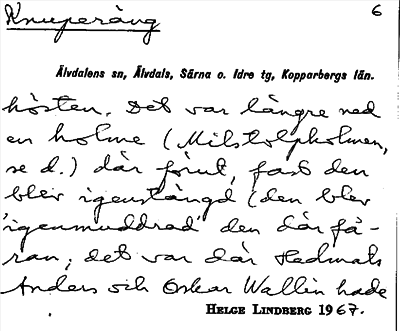 Knuperäng 6
Älvdalens sn, Älvdals, Särna o. Idre tg, Kopparbergs län.
hösten. Det var längre ned
en holme (Milstolpholmen,
se d.) där förut, fast den
blev igenstängd (den blev
'igenmuddrad' den där få-
ran; det var där Hedmals
Anders och Oskar Wallin hade
HELGE LINDBERG 1967.